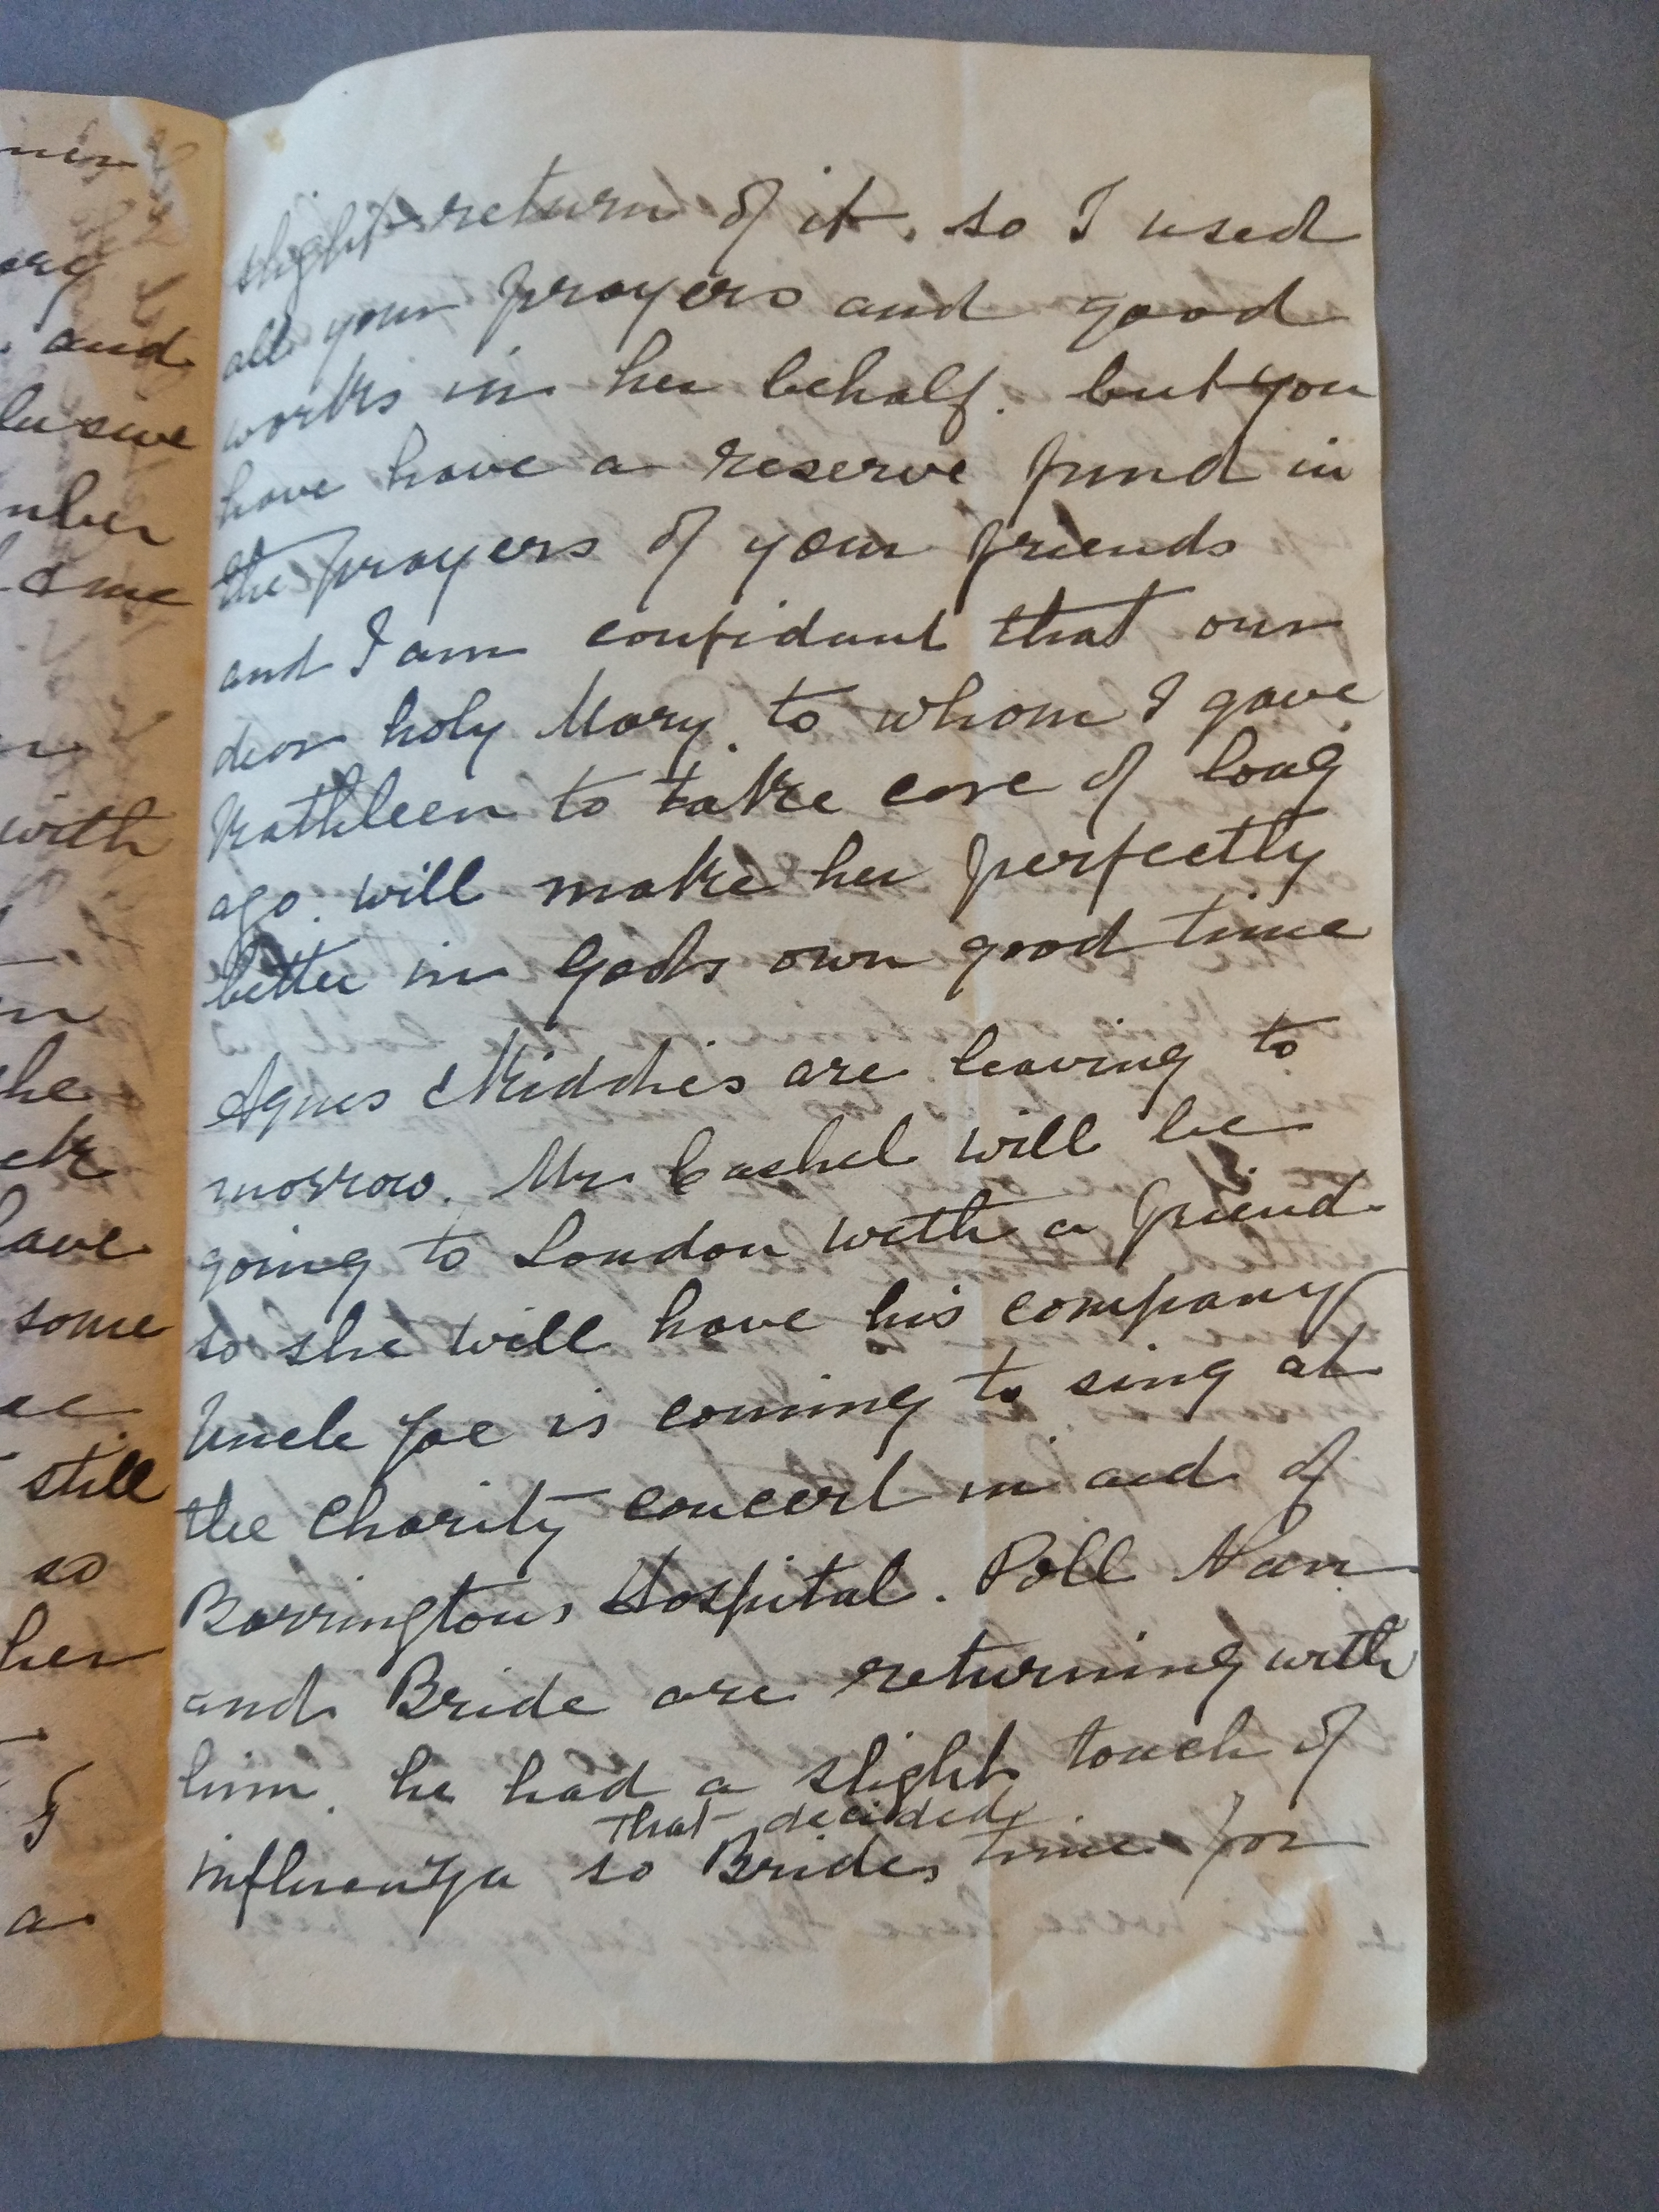 slight return of it. so I used
all your prayers and good
works in her behalf. but you
have have a reserve fund in
the prayers of your friends
and I am confidant that our
dear holy Mary. to whom I gave
Kathleen to take care of long
ago. will make her perfectly
better in Gods own good time
Agnes & Kiddies are leaving to
morrow. Mr Cashel will be
going to London with a friend
so she will have his company
Uncle Joe is coming to sing at
the Charity concert in aid of
Barringtons Hospital. Poll Nan
and Bride are returning with
him. he had a slight touch of
that decided
influenza so Brides time for
and
with
some
still
so
her
a